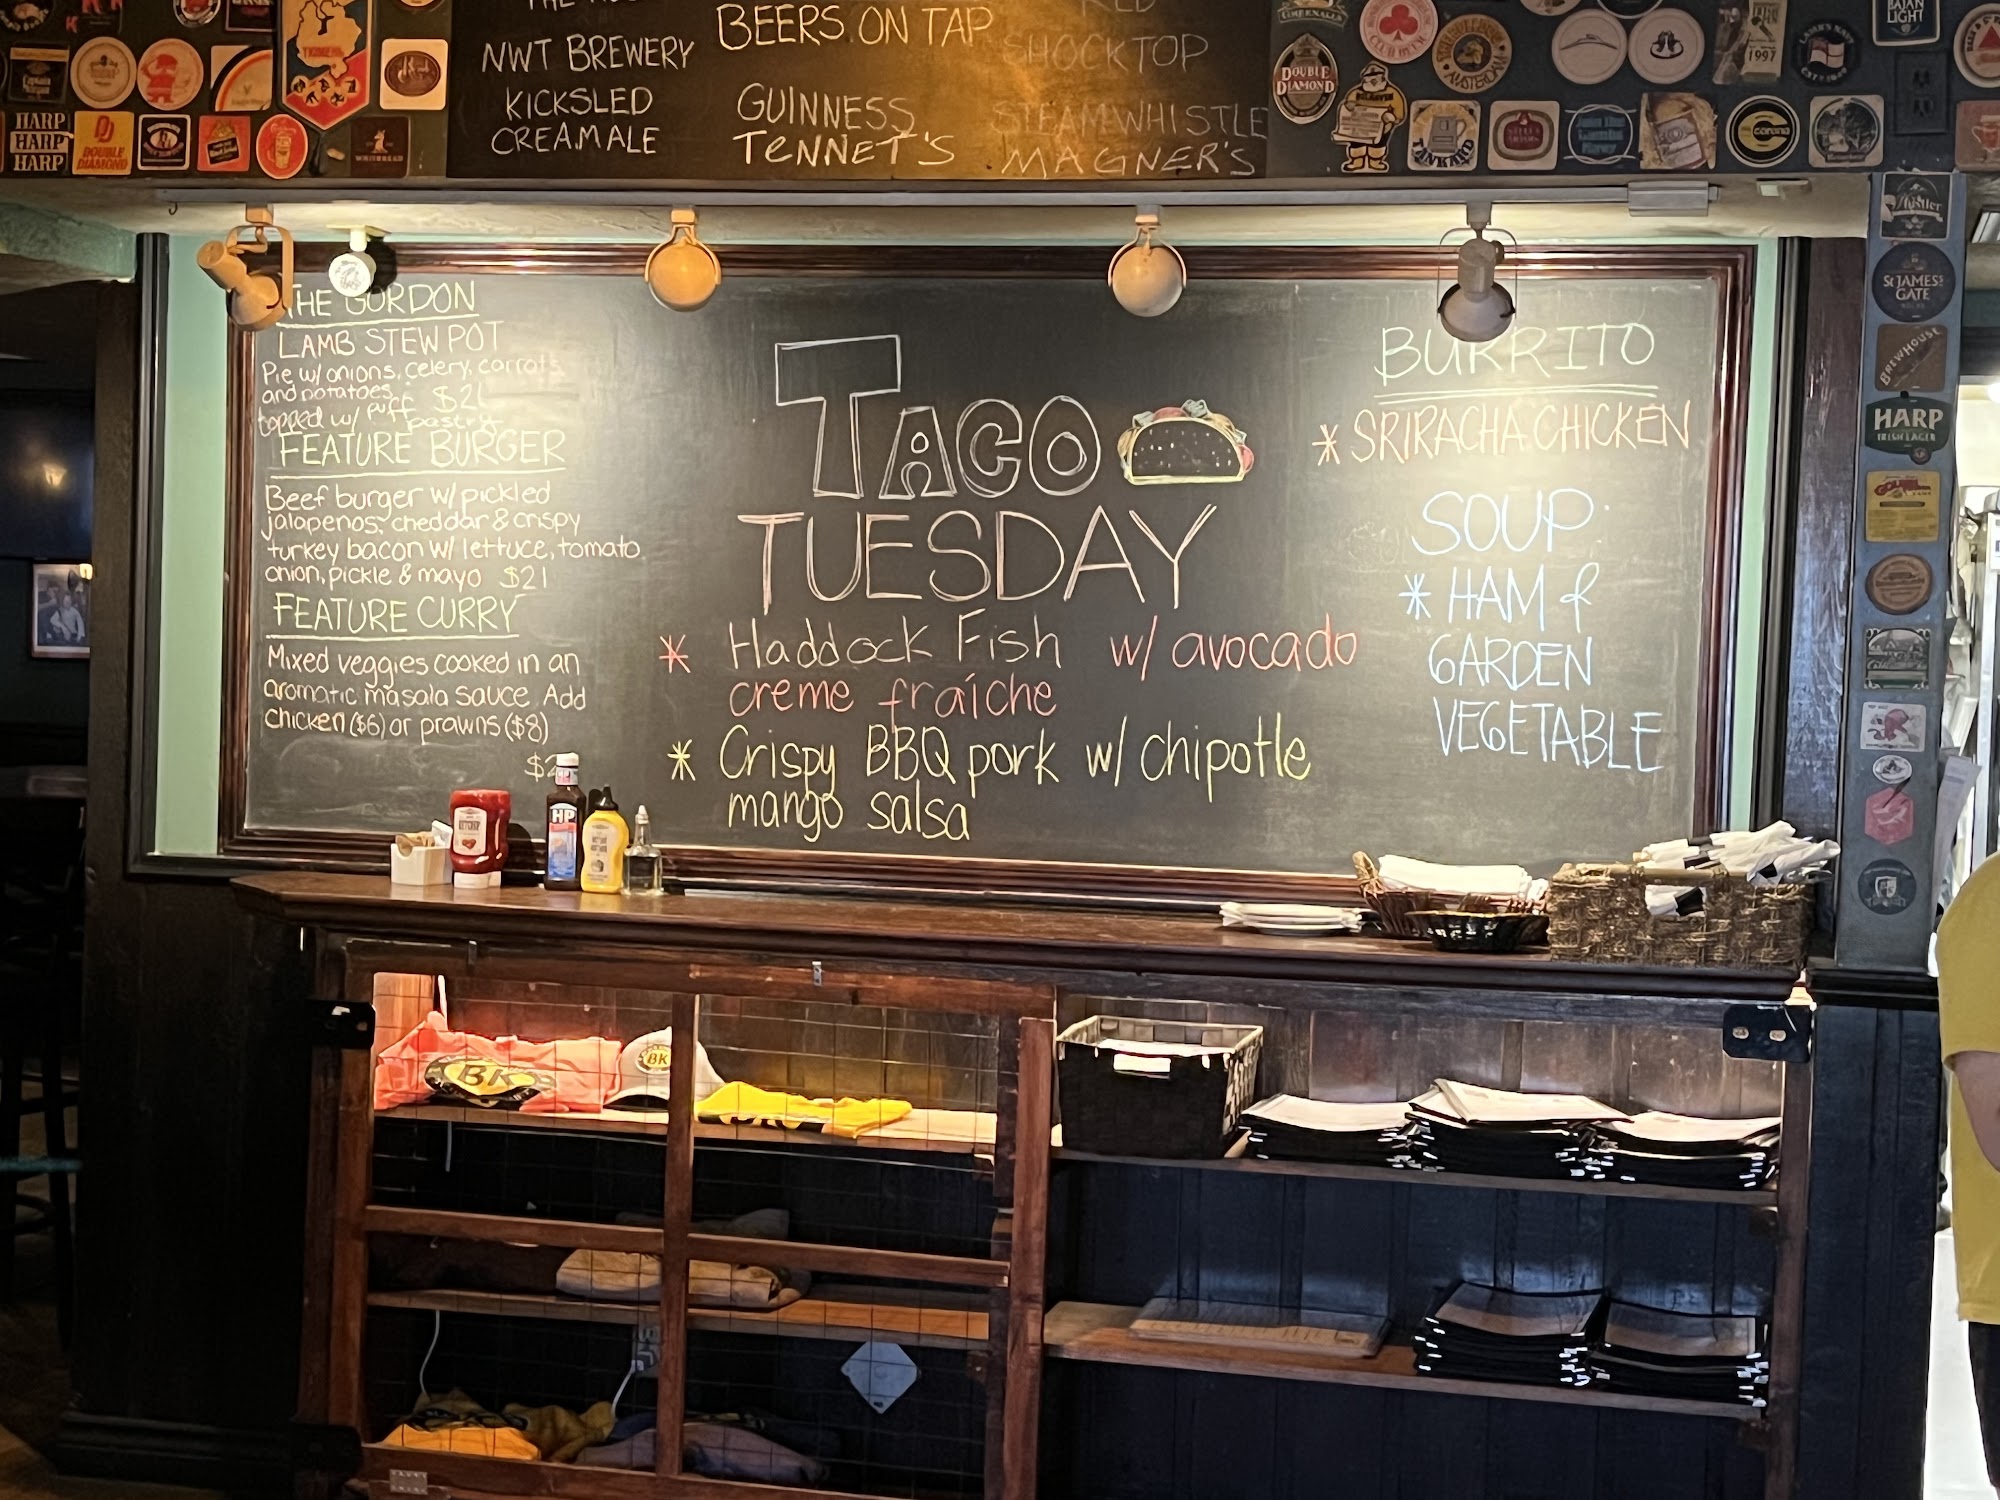 NWT BREWERY
KICKSLED
CREAM ALE
BEERS ON TAP
GUINNESS
TENNET'S
RED
SHOCKTOP
STEAMWHISTLE
MAGNER'S
HARP
HARP
HARP
DOUBLE
DIAMOND
DOUBLE
DIAMOND
AMSTERDAM
1997
TANKARD
Corona
BAJAN
LIGHT
THE GORDON
LAMB STEW POT
Pie w/ onions, celery, carrots
and potatoes
topped w/ puff pastry
FEATURE BURGER
Beef burger w/ pickled
jalapenos, cheddar & crispy
turkey bacon w/ lettuce, tomato,
onion, pickle & mayo $21
FEATURE CURRY
Mixed veggies cooked in an
aromatic masala sauce. Add
chicken ($6) or prawns ($8)
TACO
TUESDAY
* Haddock Fish w/ avocado
creme fraíche
* Crispy BBQ pork w/ chipotle
mango salsa
BURRITO
* SRIRACHA CHICKEN
SOUP
* HAM &
GARDEN
VEGETABLE
ST JAMES'S
GATE
BREWHOUSE
HARP
IRISH LAGER
KETCHUP
HP
BK
BK